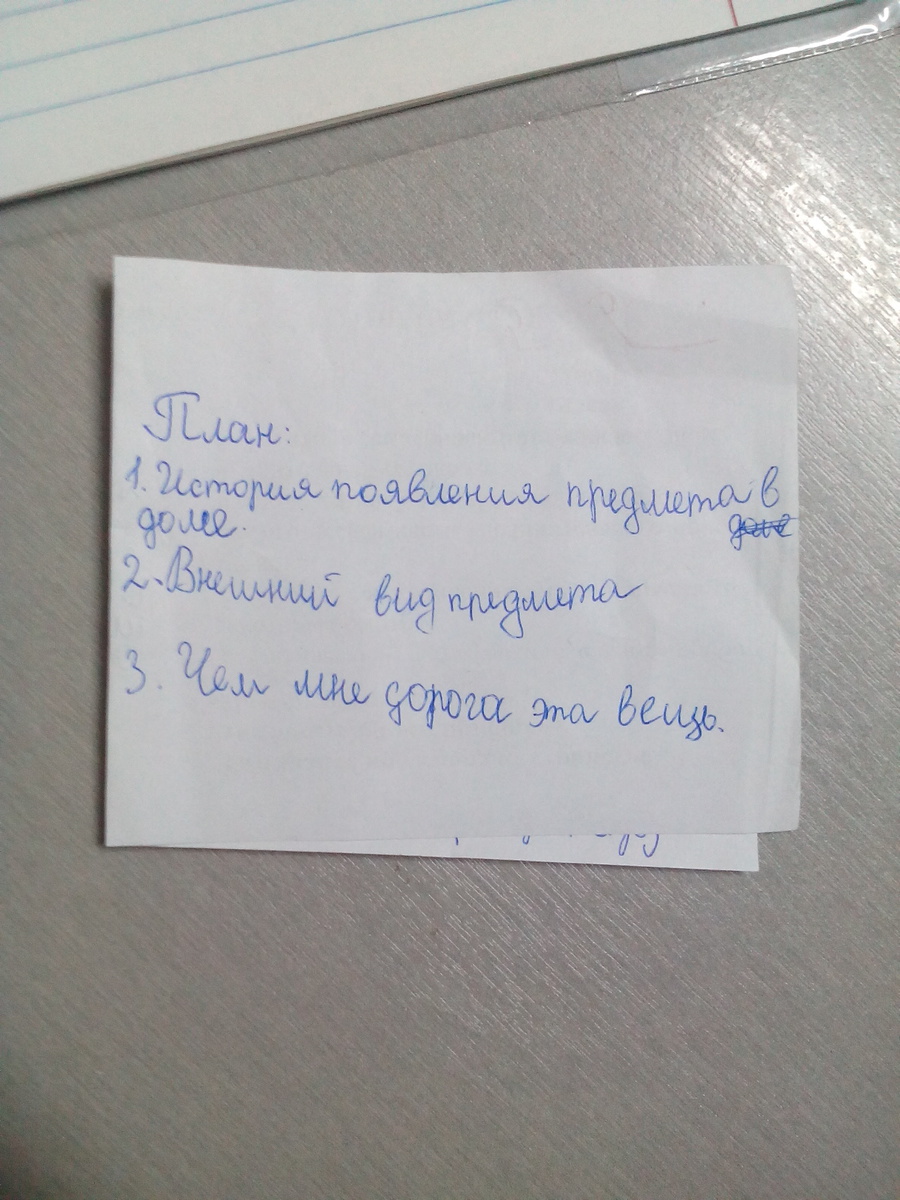 План:
1. История появления предмета в
доме.
2. Внешний вид предмета
3. Чем мне дорога эта вещь.